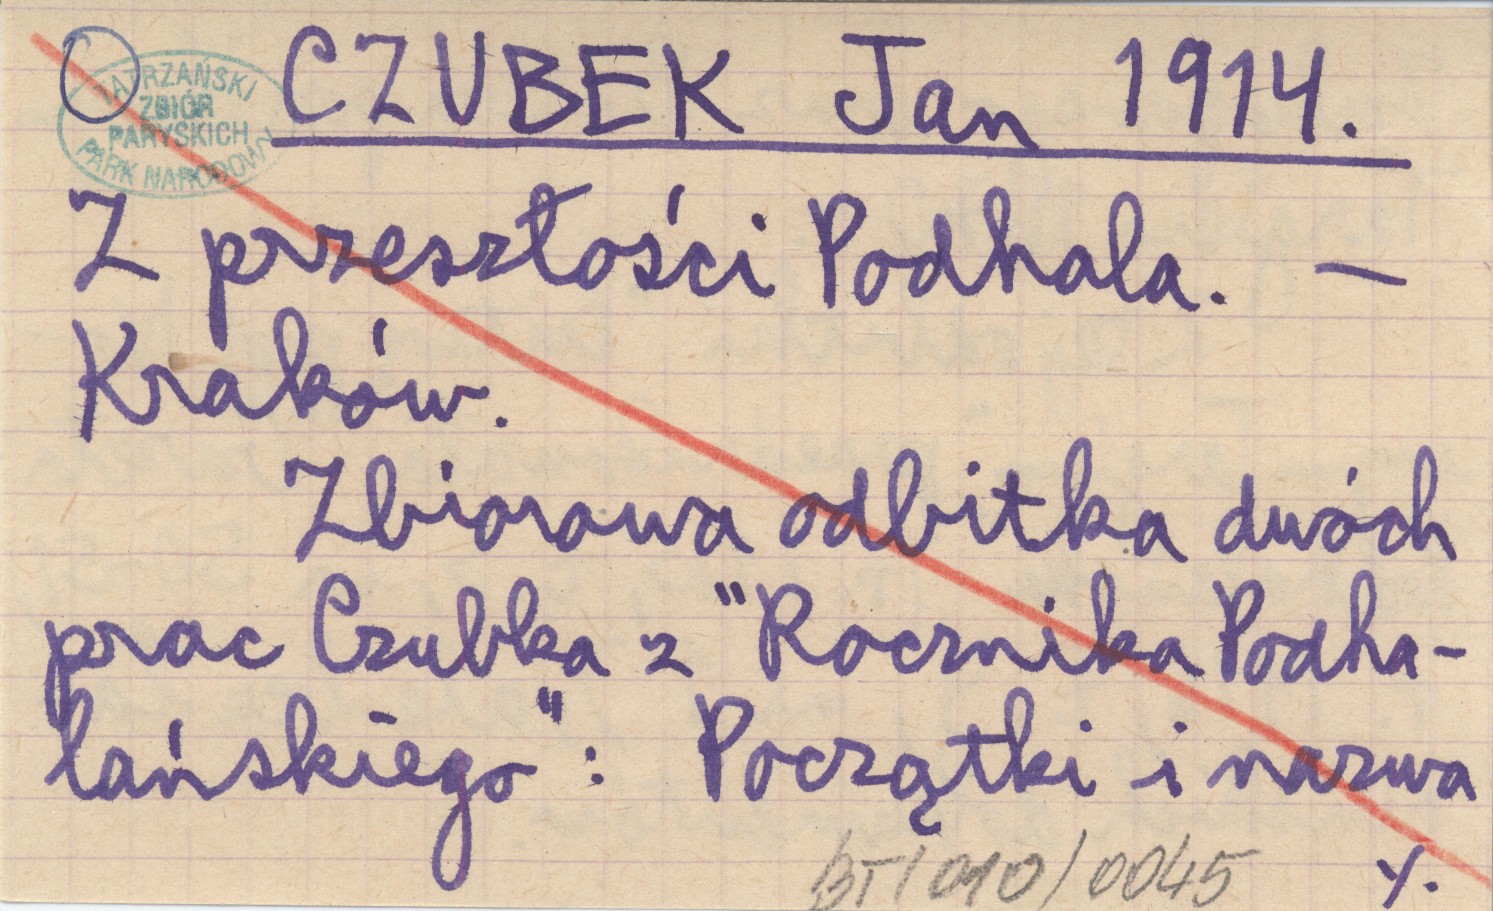 CZUBEK Jan 1914.
TATRZAŃSKI
ZBIÓR
PARYSKICH
PARK NARODOWY
Z przeszłości Podhala. —
Kraków.
Zbiorowa odbitka dwóch
prac Czubka z "Rocznika Podha-
lańskiego": Początki i nazwa
BT/010/0045